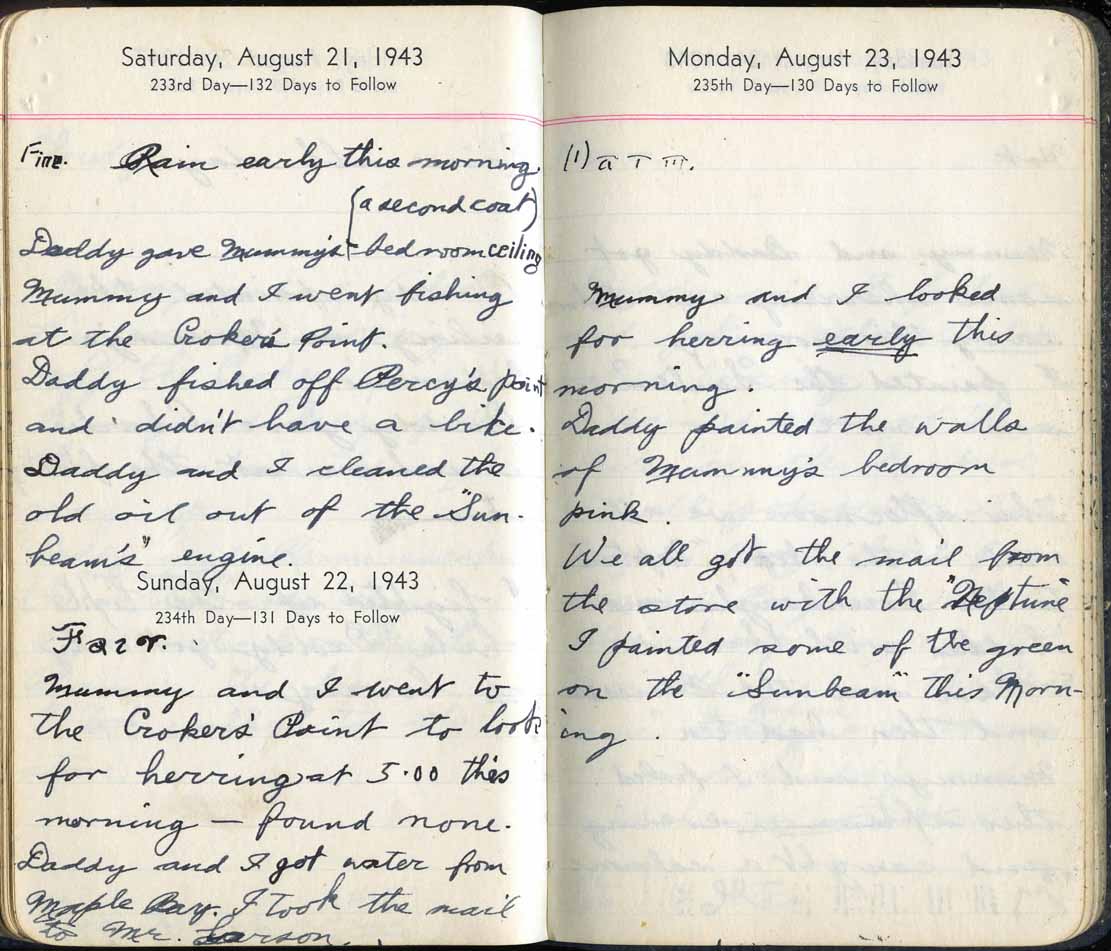 Saturday, August 21, 1943
233rd Day—132 Days to Follow
Fine. Rain early this morning
(a second coat)
Daddy gave Mummy's bedroom ceiling
Mummy and I went fishing
at the Crokers' Point.
Daddy fished off Percy's point
and didn't have a bite.
Daddy and I cleaned the
old oil out of the "Sun-
beam's" engine.
Sunday, August 22, 1943
234th Day—131 Days to Follow
Fair.
Mummy and I went to
the Crokers' Point to look
for herring at 5.00 this
morning — found none.
Daddy and I got water from
Maple Bay. I took the mail
to Mr. Larson.
Monday, August 23, 1943
235th Day—130 Days to Follow
(1)
Mummy and I looked
for herring early this
morning.
Daddy painted the walls
of Mummy's bedroom
pink.
We all got the mail from
the store with the "Neptune"
I painted some of the green
on the "Sunbeam" this Morn-
ing.